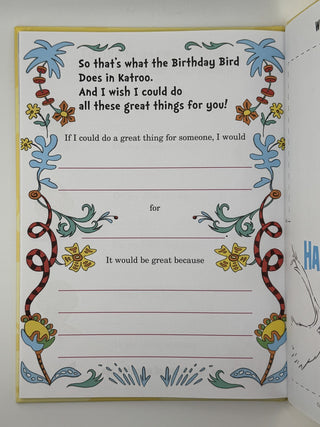 So that's what the Birthday Bird
Does in Katroo.
And I wish I could do
all these great things for you!
If I could do a great thing for someone, I would
for
It would be great because
W
HA